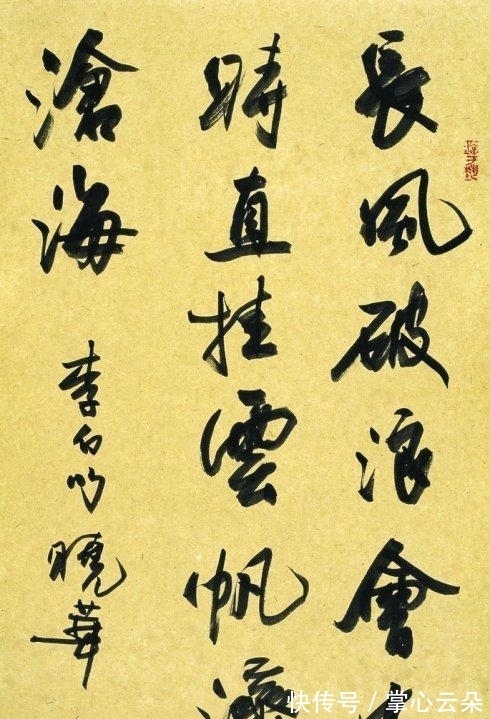 長風破浪會
時直挂雲帆
滄海
李白句 曉華
快传号/掌心云朵